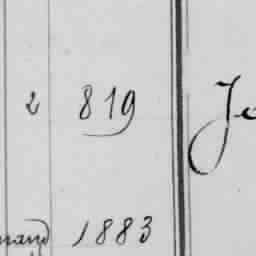 2 819 Jo
mand 1883